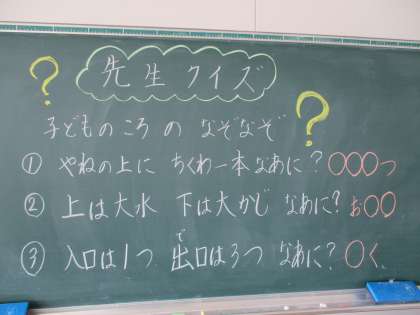 ? 先生クイズ ?
子どものころのなぞなぞ
① やねの上に ちくわ一本 なあに? ○○○つ
② 上は大水 下は大かじ なあに? お○○
③ 入口は1つ 出口は3つ なあに? ○く